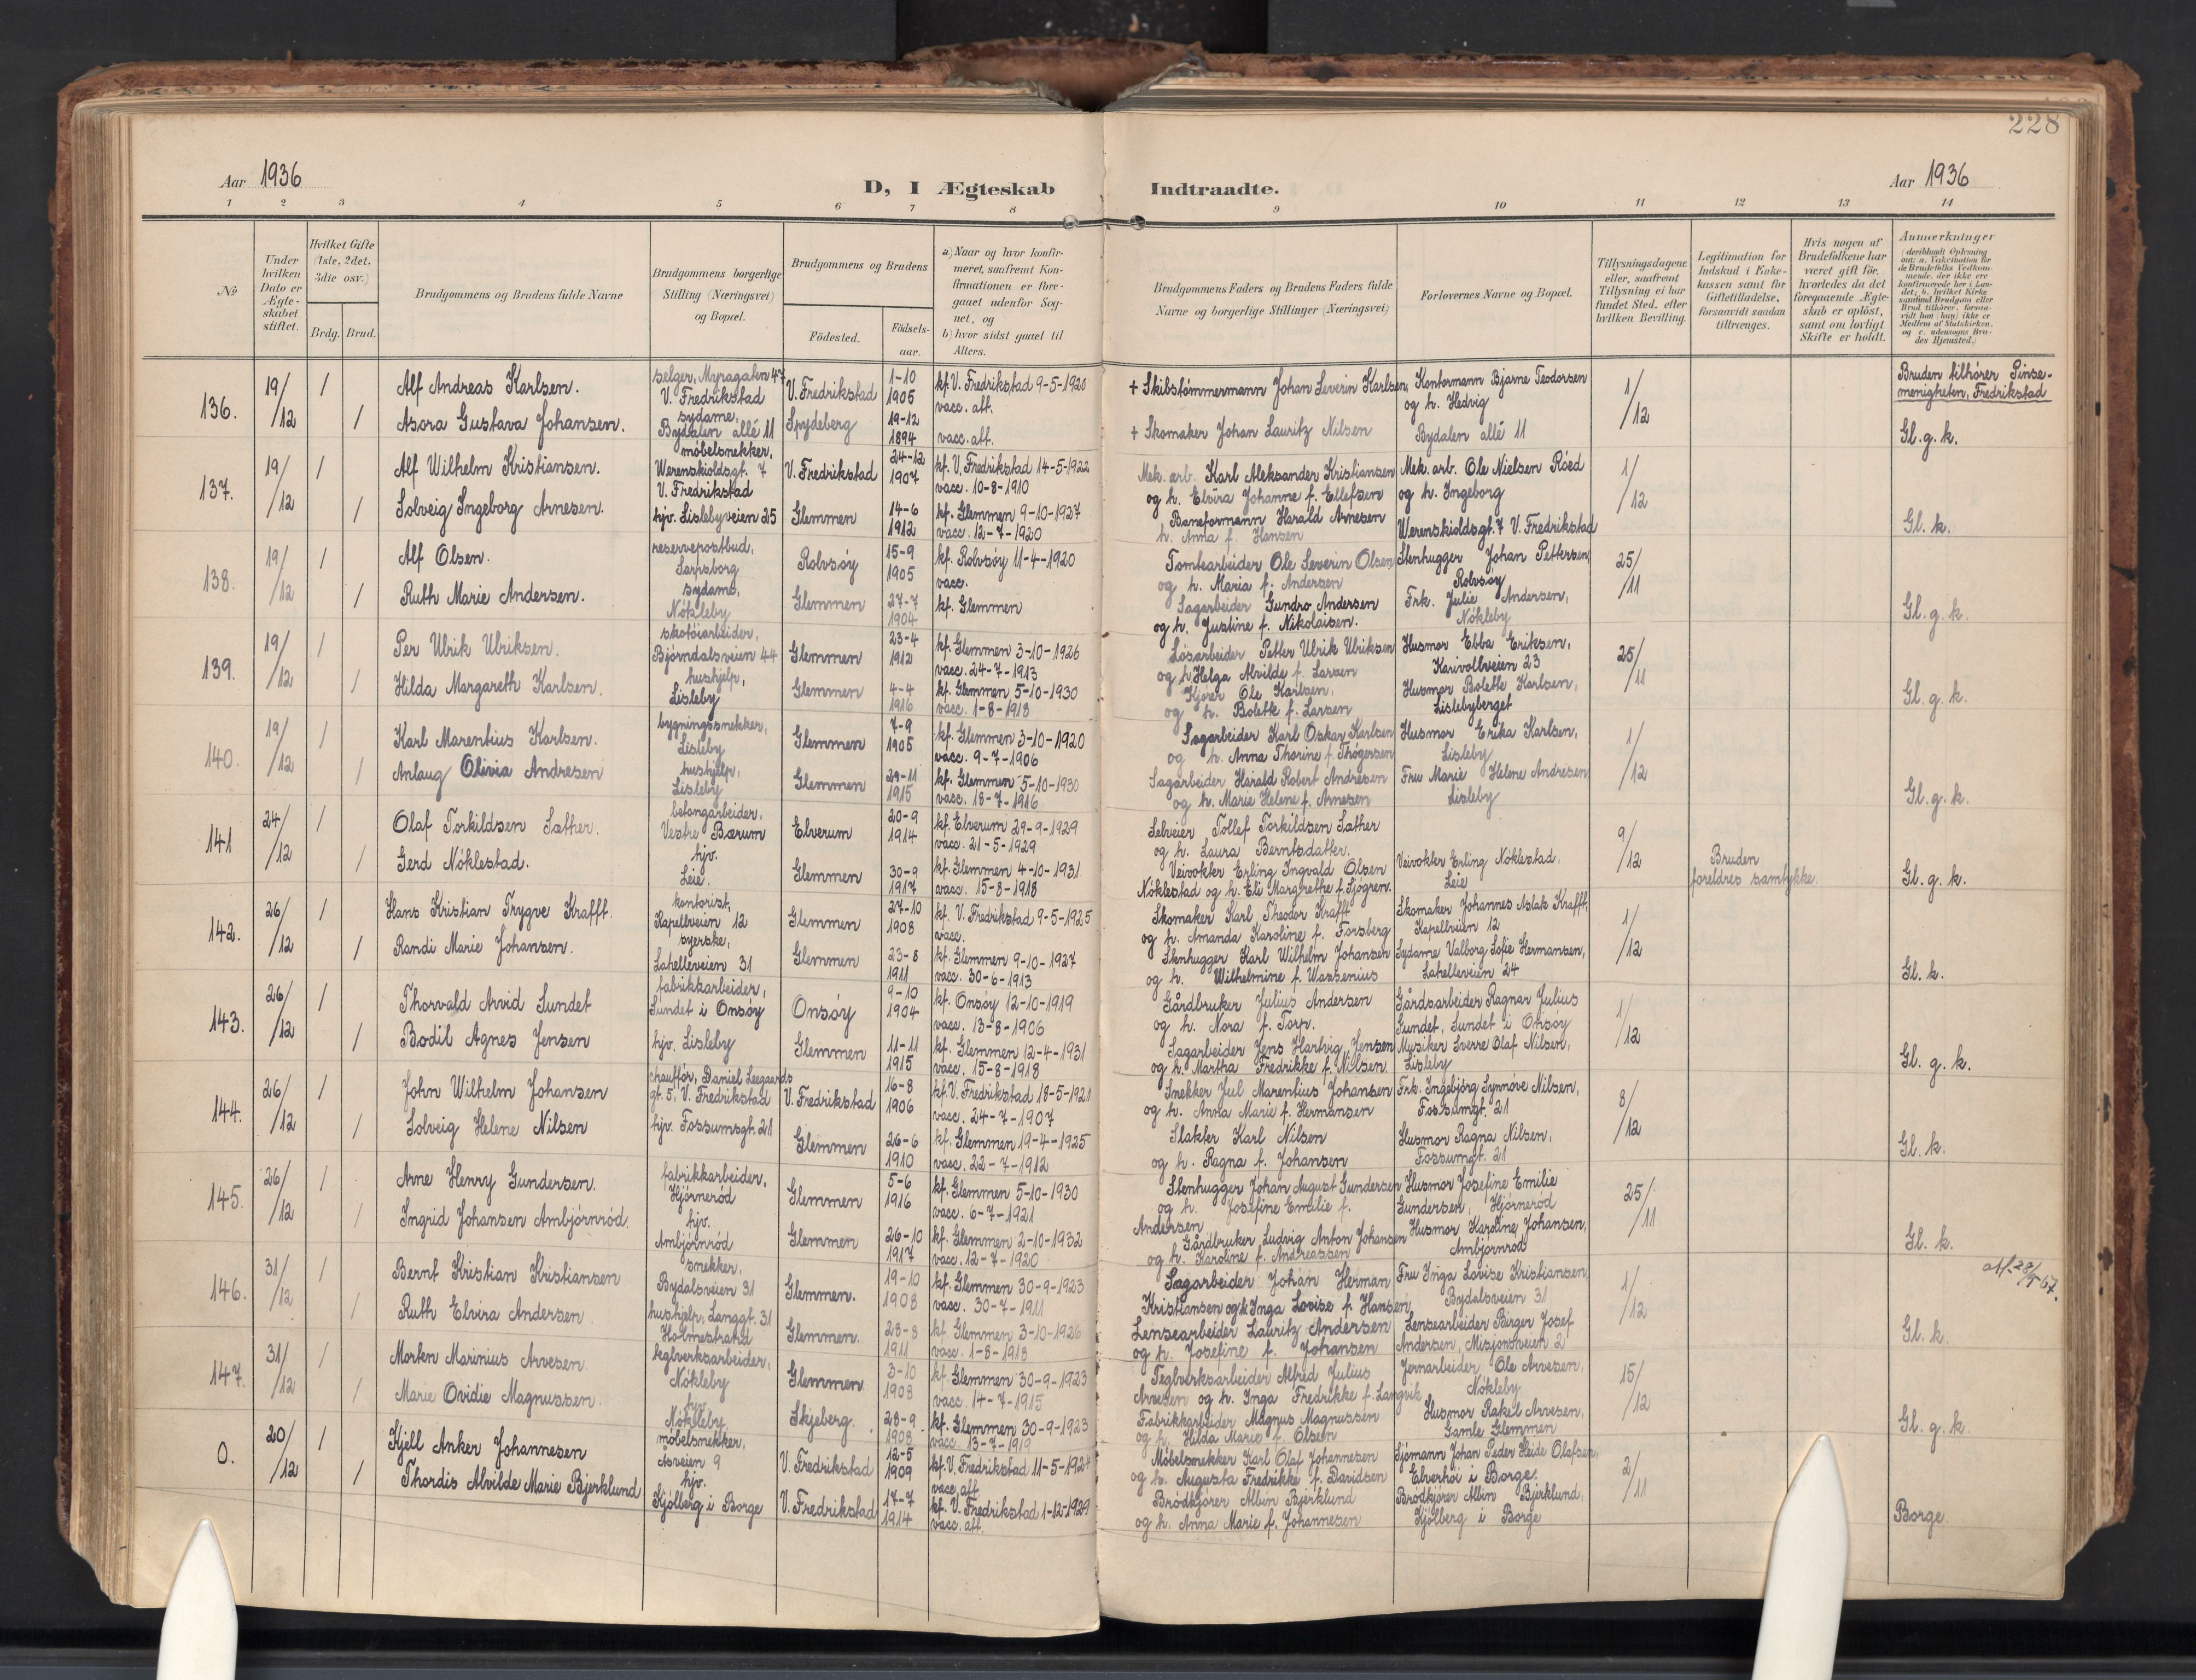 228
Aar 1936
D, I Ægteskab Indtraadte.
Aar 1936
1 2 3 4 5 6 7 8 9 10 11 12 13 14
No
Under hvilken Dato er Ægteskabet stiftet.
Hvilket Gifte (1ste, 2det, 3die osv.)
Brdg. Brud.
Brudgommens og Brudens fulde Navne
Brudgommens borgerlige Stilling (Næringsvei) og Bopæl.
Brudgommens og Brudens
Födested.
Födsels-aar.
a) Naar og hvor konfirmeret, saafremt Konfirmationen er foregaaet udenfor Sognet, og
b) hvor sidst gaaet til Alters.
Brudgommens Faders og Brudens Faders fulde Navne og borgerlige Stillinger (Næringsvei)
Forlovernes Navne og Bopæl.
Tillysningsdagene eller, saafremt Tillysning ei har fundet Sted, efter hvilken Bevilling.
Legitimation for Indskud i Enkekassen samt for Giftetilladelse, forsaavidt saadan tiltrænges.
Hvis nogen af Brudefolkene har været gift för, hvorledes da det foregaaende Ægteskab er oplöst, samt om lovligt Skifte er holdt.
Anmærkninger
(deriblandt Oplysning om: a. Vakcination for de Brudefolks Vedkommende, der ikke ere konfirmerede her i Landet; b. hvilket Kirkesamfund Brudgom eller Brud tilhörer, forsaavidt han (hun) ikke er Medlem af Statskirken, og c. udensogns Brudes Hjemsted.)
136. 19/12 1 Alf Andreas Karlsen. selger, Myragaten 47 V. Fredrikstad V. Fredrikstad 1-10 1905 kf. V. Fredrikstad 9-5-1920 vacc. att. + Skibstömmermann Johan Severin Karlsen Kontormann Bjarne Teodorsen og h. Hedvig 1/12 Bruden tilhører Pinsemenigheten, Fredrikstad
1 Asora Gustava Johansen. sydame, Bydalen allé 11 Spydeberg 19-12 1894 vacc. att. + Skomaker Johan Lauritz Nilsen Bydalen allé 11 Gl. g. k.
137. 19/12 1 Alf Wilhelm Kristiansen. möbelsnekker, Werenskioldsgt. 7 V. Fredrikstad V. Fredrikstad 24-12 1907 kf. V. Fredrikstad 14-5-1922 vacc. 10-8-1910 Mek. arb. Karl Aleksander Kristiansen og h. Elvira Johanne f. Ellefsen Mek. arb. Ole Nielsen Röed og h. Ingeborg 1/12
1 Solveig Ingeborg Arnesen. hjv. Lislebyveien 25 Glemmen 14-6 1912 kf. Glemmen 9-10-1927 vacc. 12-7-1920 Baneformann Harald Arnesen h. Anna f. Hansen Werenskioldsgt. 7 V. Fredrikstad Gl. k.
138. 19/12 1 Alf Olsen. reservepostbud, Sarpsborg Rolvsöy 15-9 1905 kf. Rolvsöy 11-4-1920 vacc. Tomtearbeider Ole Severin Olsen og h. Maria f. Andersen Stenhugger Johan Pettersen, Rolvsöy 25/11
1 Ruth Marie Andersen. sydame, Nökleby Glemmen 27-7 1904 kf. Glemmen Sagarbeider Gundro Andersen og h. Justine f. Nikolaisen. Frk. Julie Andersen, Nökleby Gl. g. k.
139. 19/12 1 Per Ulrik Ulriksen. skotöiarbeider, Björndalsveien 44 Glemmen 23-4 1912 kf. Glemmen 3-10-1926 vacc. 24-7-1913 Lösarbeider Petter Ulrik Ulriksen og h. Helga Alvilde f. Larsen Husmor Ebba Eriksen, Karivollveien 23 25/11
1 Hilda Margareth Karlsen. hushjelp, Lisleby Glemmen 4-4 1916 kf. Glemmen 5-10-1930 vacc. 1-8-1918 Kjörer Ole Karlsen, og h. Bolette f. Larsen Husmor Bolette Karlsen, Lislebyberget Gl. g. k.
140. 19/12 1 Karl Marentius Karlsen. bygningssnekker, Lisleby Glemmen 7-9 1905 kf. Glemmen 3-10-1920 vacc. 9-7-1906 Sagarbeider Karl Oskar Karlsen og h. Anna Thorine f. Thögersen Husmor Erika Karlsen, Lisleby 1/12
1 Anlaug Olivia Andresen hushjelp, Lisleby Glemmen 29-11 1915 kf. Glemmen 5-10-1930 vacc. 18-7-1916 Sagarbeider Harald Robert Andresen og h. Marie Helene f. Arnesen Fru Marie Helene Andresen Lisleby Gl. g. k.
141 24/12 1 Olaf Torkildsen Sæther. betongarbeider, Vestre Bærum Elverum 20-9 1914 kf. Elverum 29-9-1929 vacc. 21-5-1929 Selveier Tollef Torkildsen Sæther og h. Laura Berntsdatter. 9/12
1 Gerd Nöklestad. hjv. Leie. Glemmen 30-9 1917 kf. Glemmen 4-10-1931 vacc. 15-8-1918 Veivokter Erling Ingvald Olsen Nöklestad og h. Eli Margrethe f. Sjögren. Veivokter Erling Nöklestad, Leie Bruden foreldres samtykke. Gl. g. k.
142. 26/12 1 Hans Kristian Trygve Krafft. kontorist, Kapellveien 12 Glemmen 27-10 1908 kf. V. Fredrikstad 9-5-1925 vacc. Skomaker Karl Theodor Krafft og h. Amanda Karoline f. Forsberg Skomaker Johannes Aslak Krafft, Kapellveien 12 1/12
1 Randi Marie Johansen. syerske, Lahelleveien 31 Glemmen 23-8 1911 kf. Glemmen 9-10-1927 vacc. 30-6-1913 Stenhugger Karl Wilhelm Johansen og h. Wilhelmine f. Wassenius Sydame Valborg Sofie Hermansen, Lahelleveien 24 Gl. k.
143. 26/12 1 Thorvald Arvid Sundet fabrikkarbeider, Sundet i Onsöy Onsöy 9-10 1904 kf. Onsöy 12-10-1919 vacc. 13-8-1906 Gårdbruker Julius Andersen og h. Nora f. Torp. Gårdsarbeider Ragnar Julius Sundet, Sundet i Onsöy 1/12
1 Bodil Agnes Jensen hjv. Lisleby Glemmen 11-11 1915 kf. Glemmen 12-4-1931 vacc. 15-8-1918 Sagarbeider Jens Hartvig Jensen og h. Martha Fredrikke f. Nilsen Musiker Sverre Olaf Nilsen, Lisleby Gl. g. k.
144. 26/12 1 John Wilhelm Johansen chaufför, Daniel Leegaards gt. 5, V. Fredrikstad V. Fredrikstad 16-8 1906 kf. V. Fredrikstad 18-5-1921 vacc. 24-7-1907 Snekker Juel Marentius Johansen og h. Anna Marie f. Hermansen Frk. Ingebjörg Synnöve Nilsen, Fossumgt. 21 8/12
1 Solveig Helene Nilsen hjv. Fossumsgt. 21 Glemmen 26-6 1910 kf. Glemmen 19-4-1925 vacc. 22-7-1912 Slakter Karl Nilsen og h. Ragna f. Johansen Husmor Ragna Nilsen, Fossumgt. 21 Gl. k.
145. 26/12 1 Arne Henry Gundersen. fabrikkarbeider, Hjörneröd Glemmen 5-6 1916 kf. Glemmen 5-10-1930 vacc. 6-7-1921 Stenhugger Johan August Gundersen og h. Josefine Emilie f. Andersen Husmor Josefine Emilie Gundersen, Hjörneröd 25/11
1 Ingrid Johansen Ambjörnröd. hjv. Ambjörnröd Glemmen 26-10 1917 kf. Glemmen 2-10-1932 vacc. 12-7-1920 Gårdbruker Ludvig Anton Johansen og h. Karoline f. Andreassen Husmor Karoline Johansen, Ambjörnröd Gl. k.
146. 31/12 1 Bernt Kristian Kristiansen snekker, Bydalsveien 31 Glemmen. 19-10 1908 kf. Glemmen 30-9-1923 vacc. 30-7-1911 Sagarbeider Johan Herman Kristiansen og h. Inga Lovise f. Hansen Fru Inga Lovise Kristiansen Bydalsveien 31 1/12
1 Ruth Elvira Andersen hushjelp, Langgt. 31 Holmestrand Glemmen. 28-8 1911 kf. Glemmen 3-10-1926 vacc. 1-8-1913 Lensearbeider Lauritz Andersen og h. Josefine f. Johansen Lensearbeider Birger Josef Andersen, Misjonsveien 2 Gl. k.
147. 31/12 1 Morten Marinius Arvesen. teglverksarbeider, Nökleby Glemmen 3-10 1908 kf. Glemmen 30-9-1923 vacc. 14-7-1915 Teglverksarbeider Alfred Julius Arvesen og h. Inga Fredrikke f. Langvik Jernarbeider Ole Arvesen, Nökleby 15/12
1 Marie Ovidie Magnussen. hjv. Nökleby Skjeberg. 28-9 1908 kf. Glemmen 30-9-1923 vacc. 13-7-1919 Fabrikkarbeider Magnus Magnussen og h. Hilda Marie f. Olsen Husmor Rakel Arvesen, Gamle Glemmen Gl. g. k.
0. 20/12 1 Kjell Anker Johannesen möbelsnekker, Åsveien 9 V. Fredrikstad 12-5 1909 kf. V. Fredrikstad 11-5-1924 vacc. att Möbelsnekker Karl Olaf Johannesen og h. Augusta Fredrikke f. Davidsen Sjömann Johan Peder Heide Olafsen, Elverhöi i Borge. 2/11
1 Thordis Alvilde Marie Bjerklund hjv. Kjölberg i Borge V. Fredrikstad 17-7 1914 kf. V. Fredrikstad 1-12-1929 vacc. att. Brödkjörer Albin Bjerklund og h. Anna Marie f. Johannesen Brödkjörer Albin Bjerklund, Kjölberg i Borge Borge.